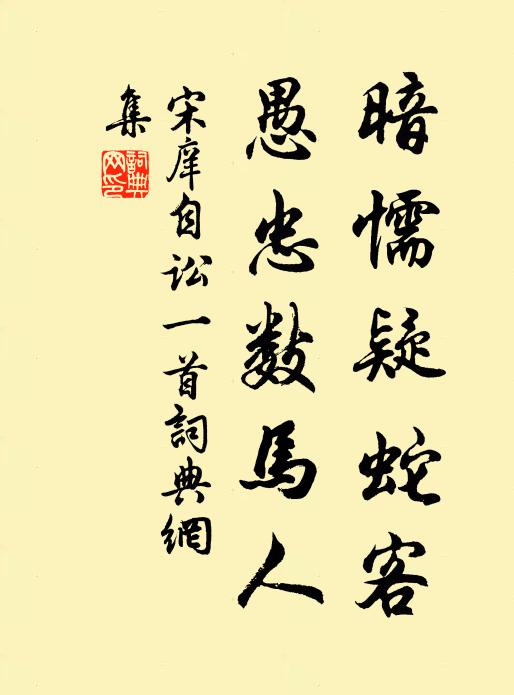 暗懦疑蛇客
愚忠数馬人
宋庠自讼一首詞典網
集
詞典
网印